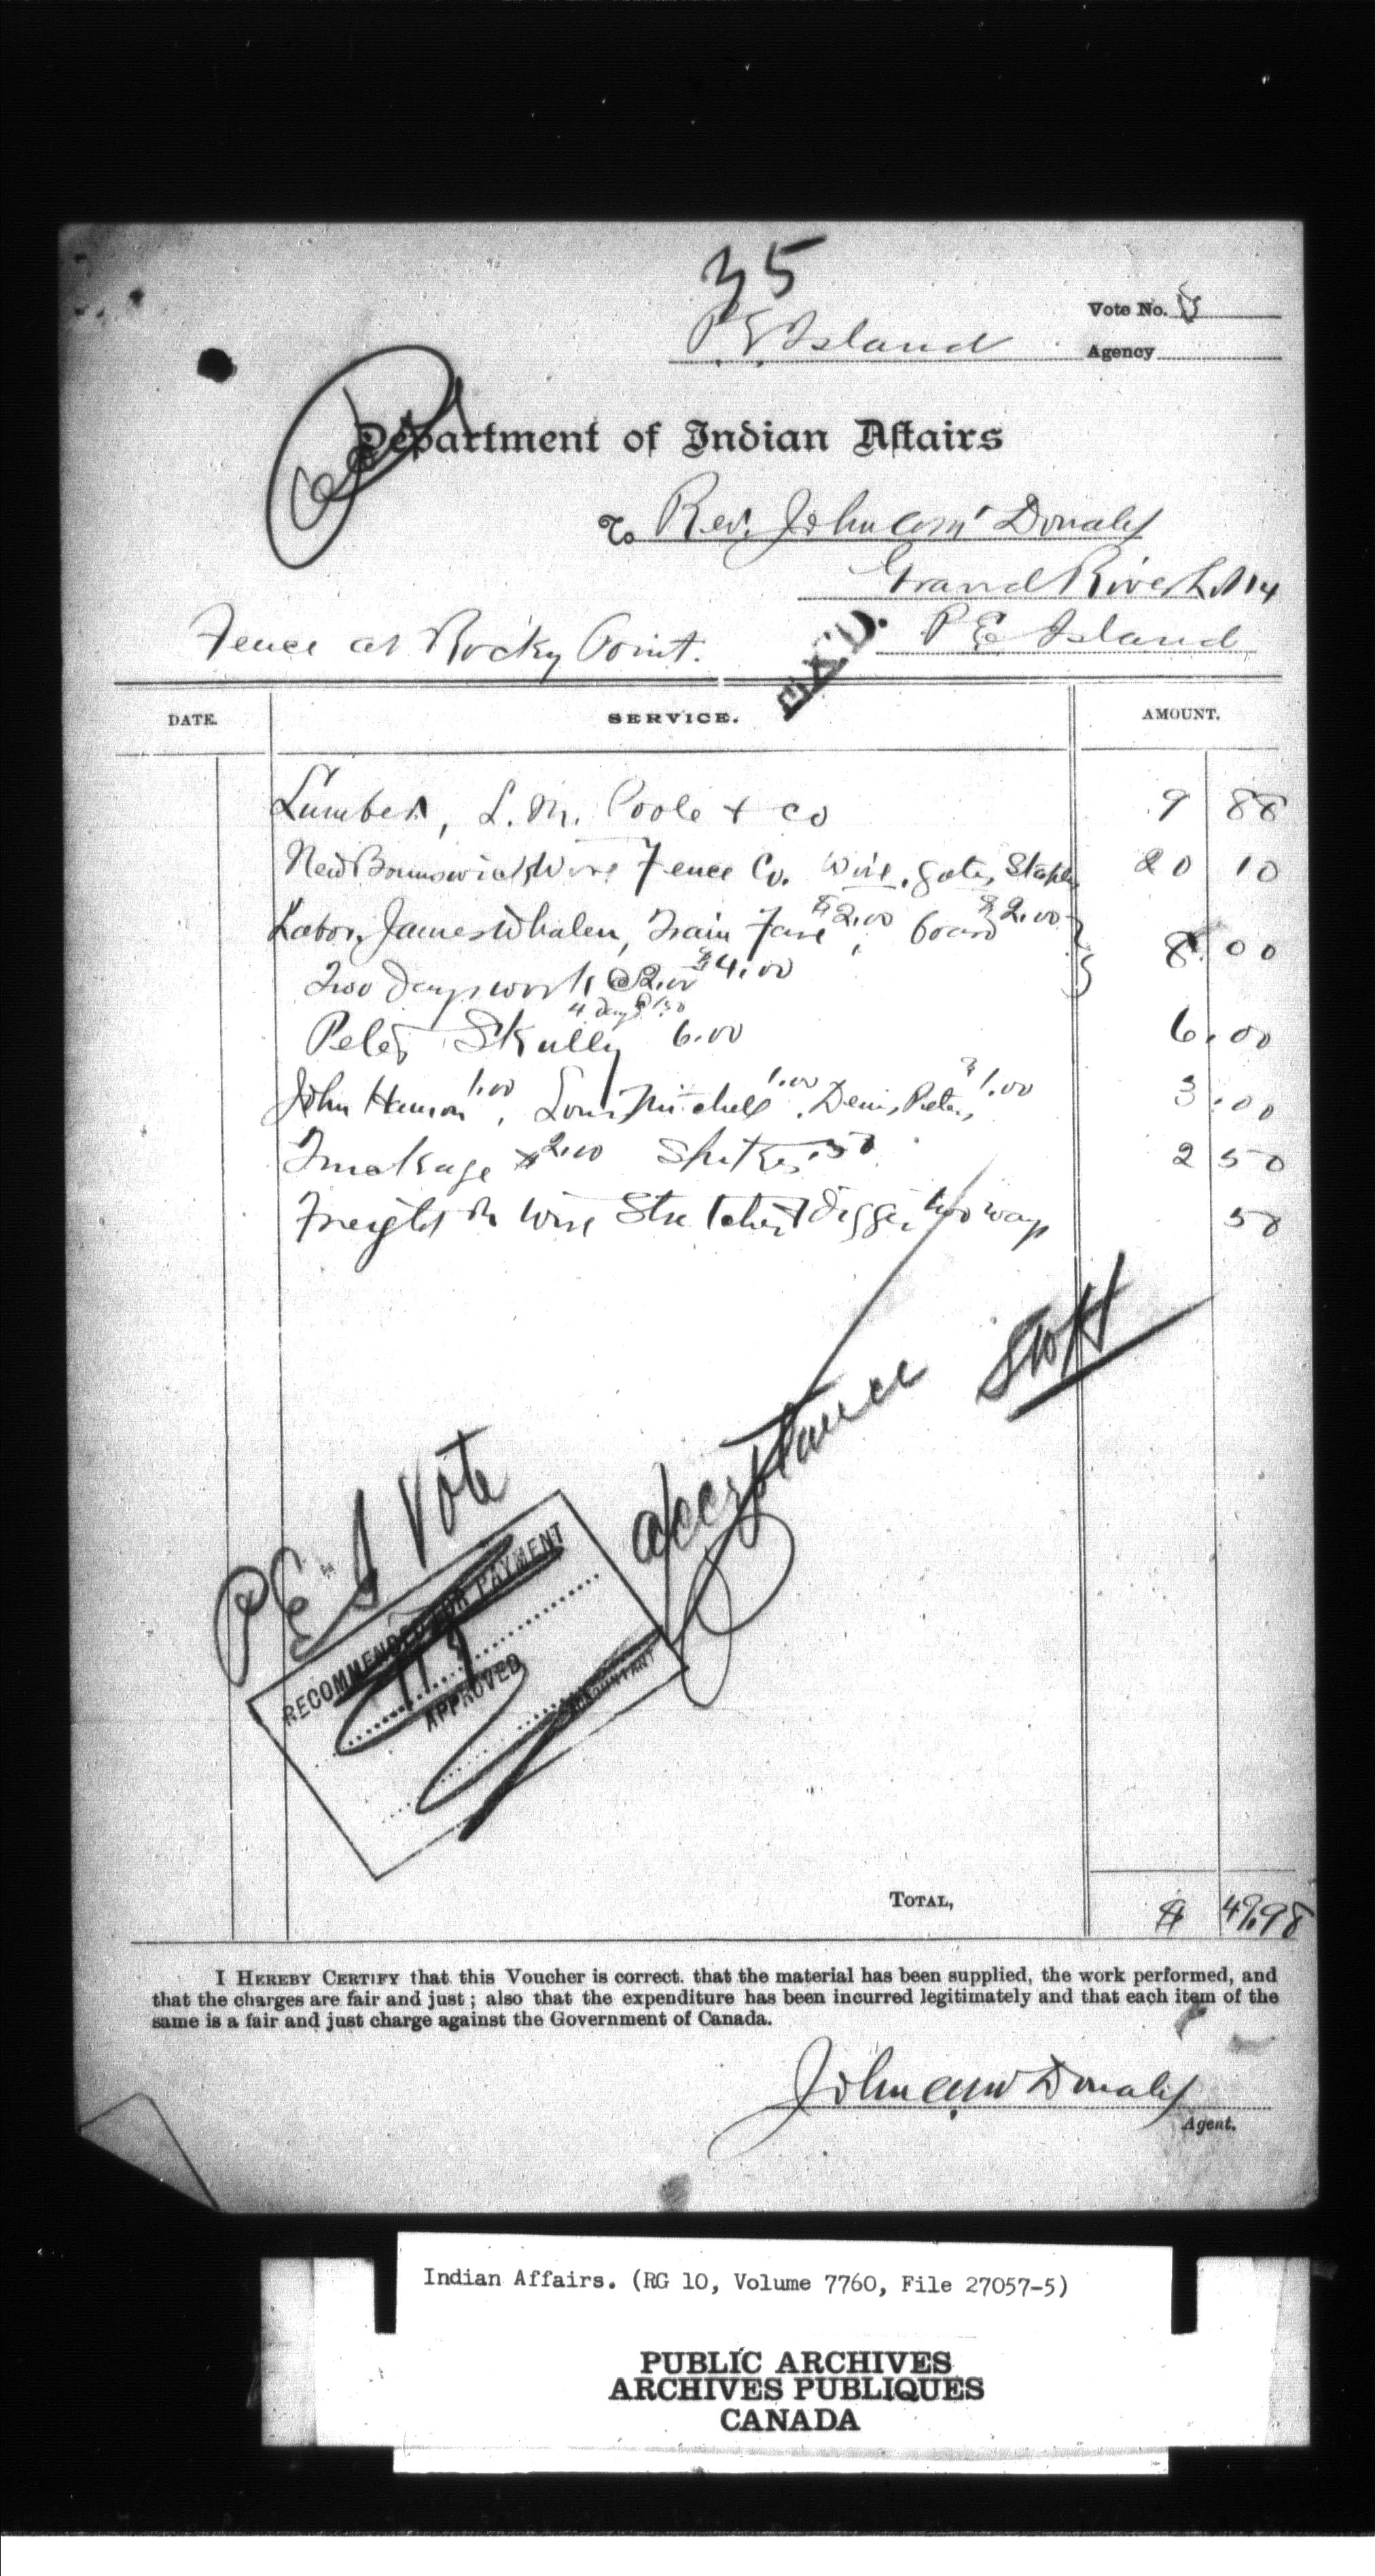 35
Vote No.
P E Island Agency
Department of Indian Affairs
To Rev. John A. McDonald
Grand River Lot 14
Fence at Rocky Point. P E Island
EX'D.
DATE. SERVICE. AMOUNT.
Lumber, L. M. Poole & Co 9 88
New Brunswick Wire Fence Co. Wire, gate, Staples 20 10
Labor, James Whalen, Train Fare $2.00, board $2.00
Two Days work @ 2.00 $4.00 8.00
4 days @ 1.50
Peter Skully 6.00 6.00
John 1.00, Louis Mitchell 1.00, Denis Peters, $1.00 3.00
Truckage $2.00 Spikes .50 2 50
Freight on Wire Stretcher & digger two ways 50
Acceptance
P E I Vote
RECOMMENDED FOR PAYMENT
APPROVED
ACCOUNTANT
TOTAL, $ 49.98
I HEREBY CERTIFY that this Voucher is correct. that the material has been supplied, the work performed, and
that the charges are fair and just ; also that the expenditure has been incurred legitimately and that each item of the
same is a fair and just charge against the Government of Canada.
John A. McDonald
Agent.
Indian Affairs. (RG 10, Volume 7760, File 27057-5)
PUBLIC ARCHIVES
ARCHIVES PUBLIQUES
CANADA